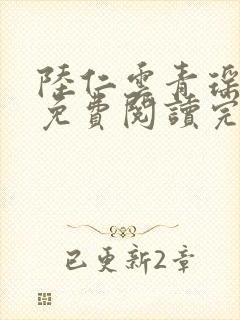 陸仁雲青瑤
免費閱讀完
已更新2章